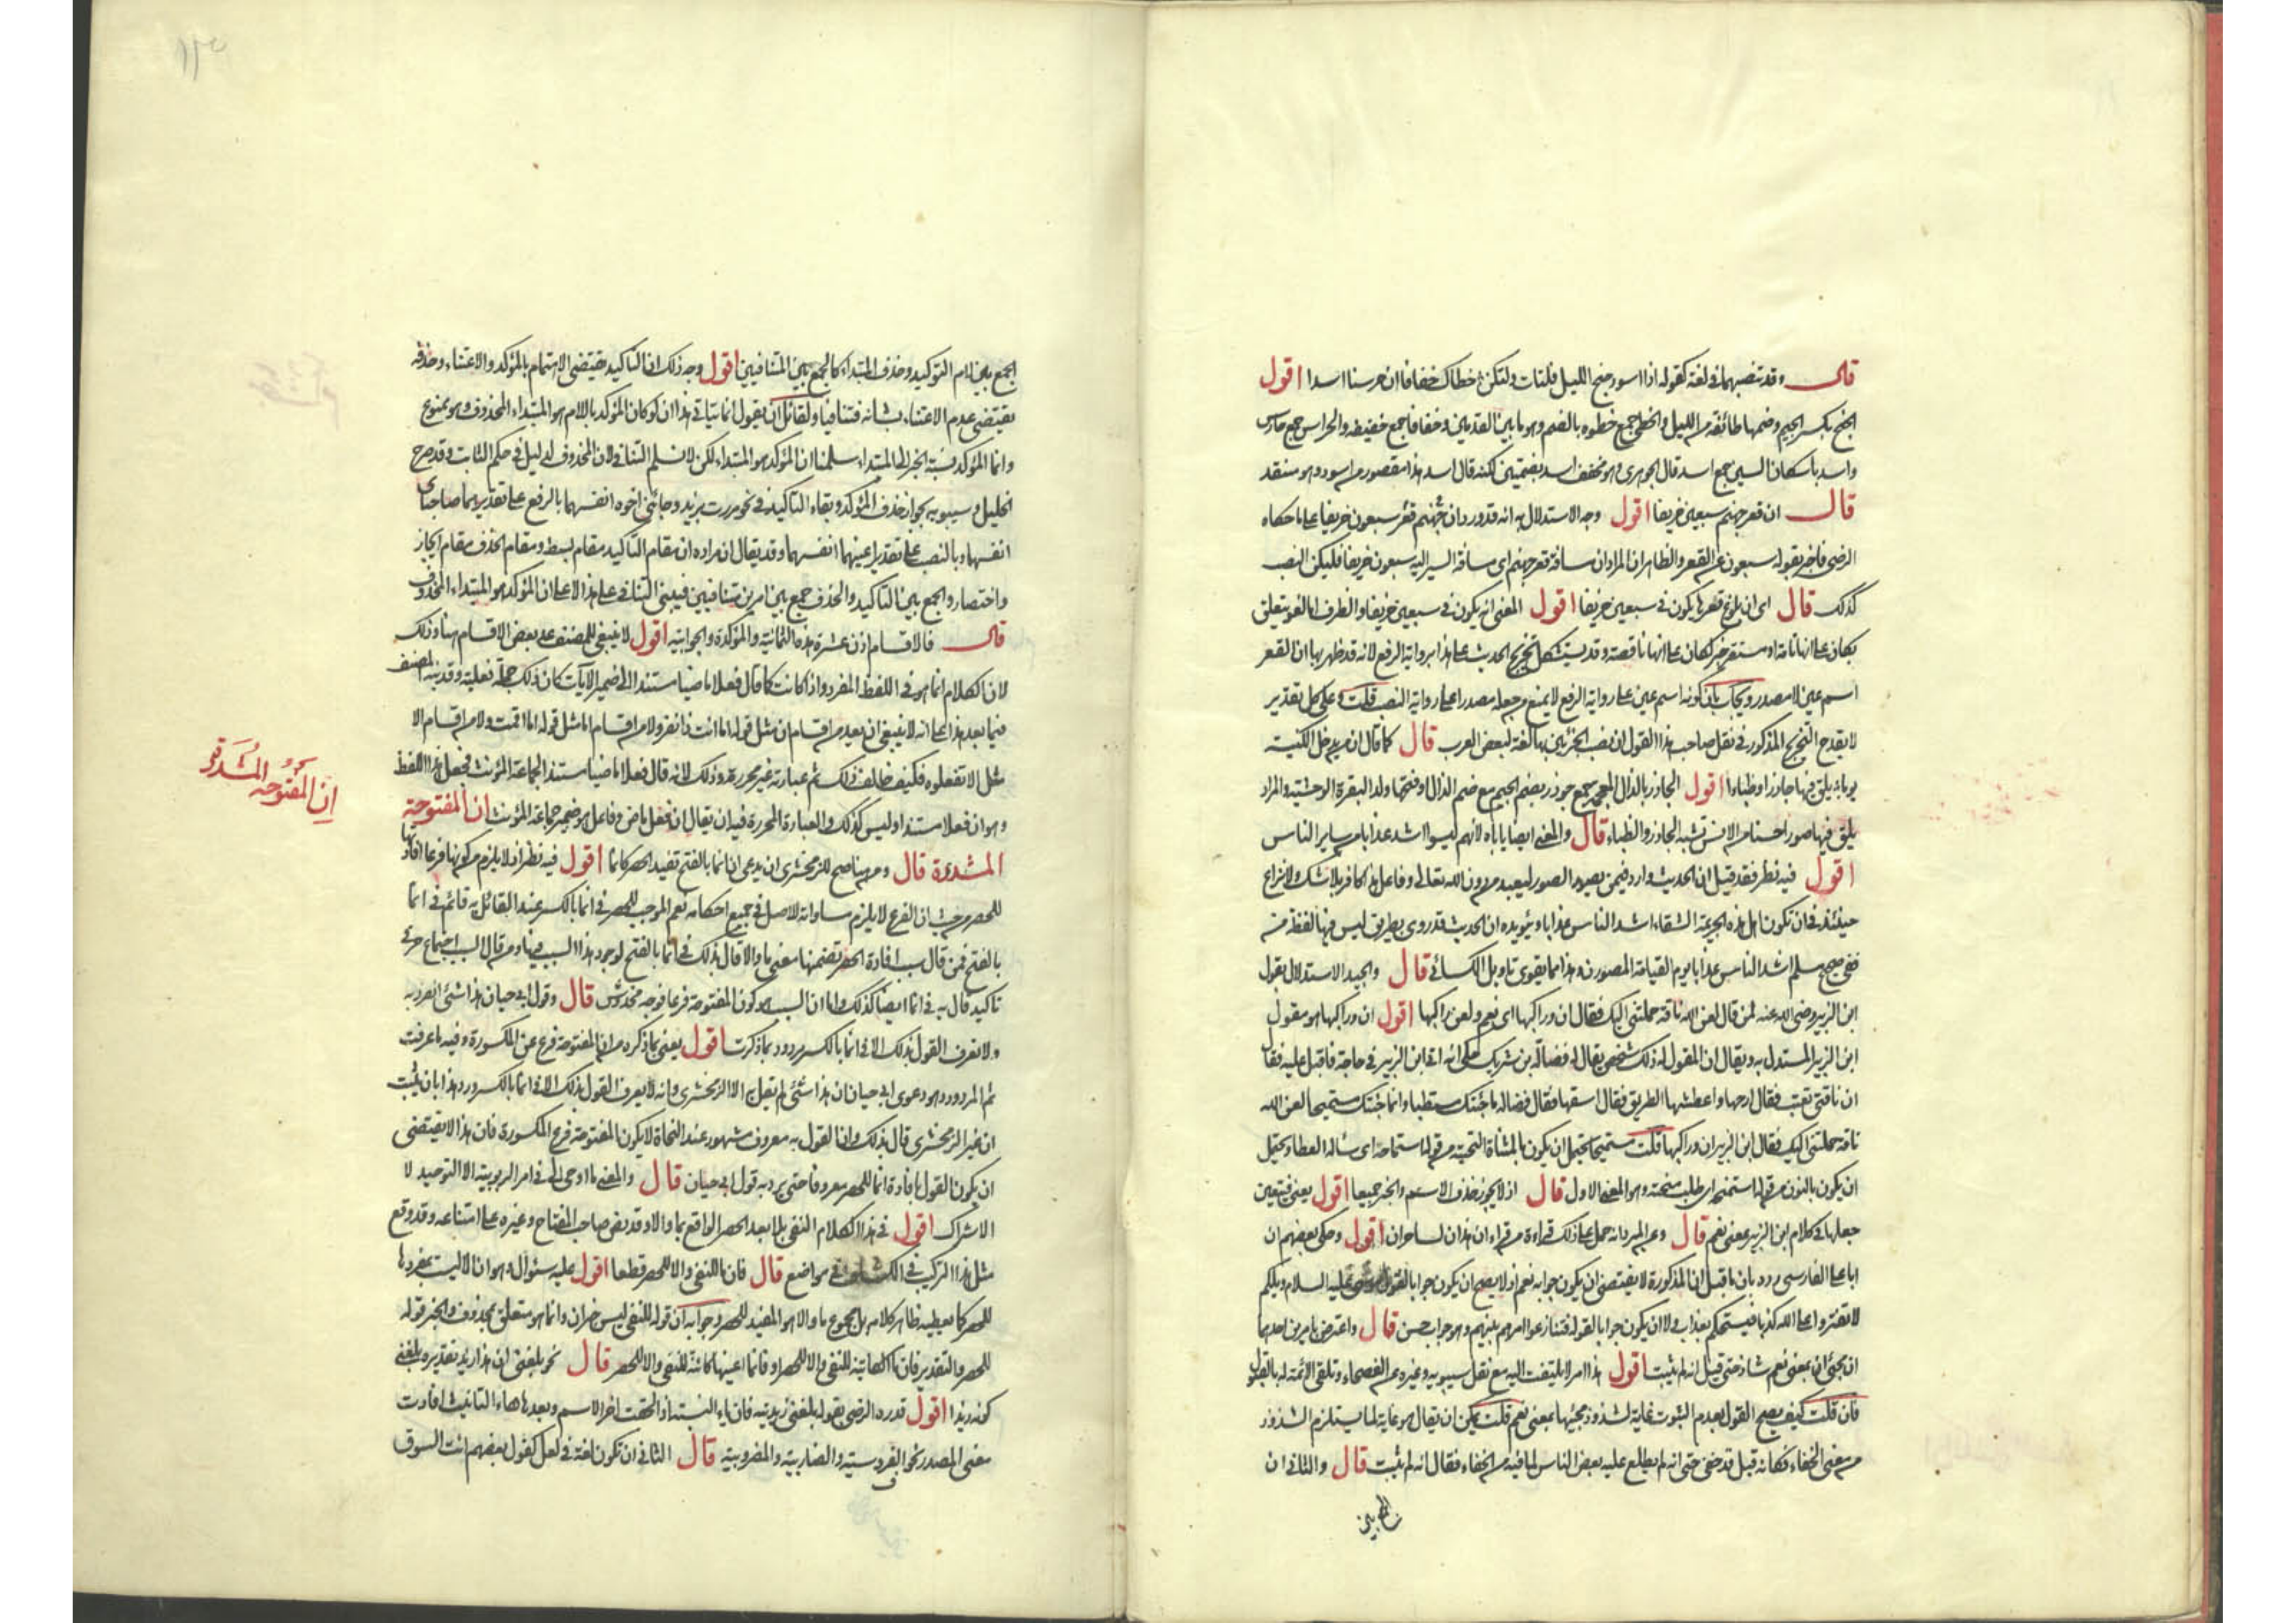 قال وقد تنصبهما في لغة كقوله اذا اسود جنح الليل فلتات ولتكن خطاك خفافا ان حراسنا اسدا اقول
الجنح بكسر الجيم وضمها طائفة من الليل والخطى جمع خطوه بالضم وهو ما بين القدمين وخفافا جمع خفيفه والحراس جمع حارس
واسد باسكان السين جمع اسد قال الجوهري وهو مخفف اسد بضمتين لكنه قال اسد هذا مقصور من اسود وهو منتقد
قال ان قعر جهنم سبعين خريفا اقول وجه الاستدلال به انه قد ورد ان جهنم قعر سبعون خريفا على ما حكاه
الرضي فاخبر بقوله سبعون عن القعر والظاهر ان المراد ان مسافة قعر جهنم اى مسافة السير اليه سبعون خريفا فليكن النصب
كذلك قال اى ان بلوغ قعرها يكون في سبعين خريفا اقول المعنى انه يكون في سبعين خريفا والظرف اما لغو يتعلق
بكان على انها تامة او مستقر خبر لكان على انها ناقصة وقد يستشكل تخريج الحديث على هذا برواية الرفع لانه قد ظهر بها ان القعر
اسم عين لا مصدر ويجاب بان كونه اسم عين على رواية الرفع لا يمنع من جعله مصدرا على رواية النصب قلت وعلى كل تقدير
لا يقدح التخريج المذكور في نقل صاحب هذا القول ان نصب الجزئين بها لغة لبعض العرب قال كما قال ان من يدخل الكنيسة
يوما به يلق فيها جاذرا وظباءا اقول الجاذر بالذال المعجمه جمع جوذر بضم الجيم مع ضم الذال وفتحها ولد البقرة الوحشية والمراد
يلق فيها صورا حسنا من الانس تشبه الجاذر والظباء قال والمعنى ايضا ياباه لانهم ليسوا اشد عذابا من ساير الناس
اقول فيه نظر فقد قيل ان الحديث وارد فيمن يصور الصور ليعبد من دون الله تعالى وفاعل هذا كافر بلا شك ولا نزاع
حينئذ في ان تكون اهل هذه الجريمة الشقاء اشد الناس عذابا ويؤيده ان الحديث قد روى بطريق ليس فيها لفظة من
ففي صحيح مسلم اشد الناس عذابا يوم القيامة المصورون وهذا مما يقوى تاويل الكسائي قال والجيد الاستدلال بقول
ابن الزبير رضى الله عنه لمن قال لعن الله ناقة حملتني اليك فقال ان وراكبها اى نعم ولعن راكبها اقول ان وراكبها هو مقول
ابن الزبير المستدل به ويقال ان المقول له ذلك شخص يقال له فضالة بن شريك حكى انه اتى ابن الزبير في حاجة فاقبل عليه فقال
ان ناقتي تعبت فقال ارحها واعطشها الطريق فقال اسقها فقال فضاله ما جئتك مستطبا وانما جئتك مستميحا لعن الله
ناقة حملتني اليك فقال ابن الزبير ان وراكبها قلت مستميحا يحتمل ان يكون بالمثناة التحتية من قولهم استماحه اى ساله العطاء ويحتمل
ان يكون بالنون من قولهم استمنحه اى طلب منحته وهو المعنى الاول قال اذ لا يجوز حذف الاسم والخبر جميعا اقول يعنى فتعين
جعلها في كلام ابن الزبير بمعنى نعم قال وعن المبرد انه حمل على ذلك قراءة من قراء ان هذان لساحران اقول وحكى بعضهم ان
ابا على الفارسي رده بان ما قبل ان المذكورة لا يقتضى ان يكون جوابه نعم اذ لا يصح ان يكون جوابا لقول موسى عليه السلام ويلكم
لا تفتروا على الله كذبا فيسحتكم بعذاب ولا ان يكون جوابا لقوله فتنازعوا امرهم بينهم وهو جواب حسن قال واعترض بامرين احدهما
ان مجئ ان بمعنى نعم شاذ حتى قيل انه لم يثبت اقول هذا امر لا يلتفت اليه مع نقل سيبويه وغيره عن الفصحاء وتلقى الائمة له بالقبول
فان قلت كيف يصح القول بعدم الثبوت غاية لشذوذ مجيئها بمعنى نعم قلت يمكن ان يقال هو غاية لما يستلزم الشذوذ
من معنى الخفاء فكانه قيل قد خفى حتى انه لم يطلع عليه بعض الناس لما فيه من الخفاء فقال انه لم يثبت قال والثاني ان
الجمع بين
الجمع بين لام التوكيد وحذف المبتداء كالجمع بين المتنافيين اقول وجه ذلك ان التاكيد يقتضى الاهتمام بالمؤكد والاعتناء وحذفه
يقتضى عدم الاعتناء بشانه فتنافيا ولقائل ان يقول انما يتاتى هذا ان لو كان المؤكد باللام هو المبتداء المحذوف وهو ممنوع
وانما المؤكد نسبة الخبر الى المبتداء سلمنا ان المؤكد هو المبتداء لكن لا نسلم التنافي لان المحذوف لدليل في حكم الثابت وقد صرح
الخليل وسيبويه بجواز حذف المؤكد وبقاء التاكيد في نحو مررت بزيد وجائني اخوه انفسهما بالرفع على تقديرهما صاحباى
انفسهما وبالنصب على تقدير اعنيهما انفسهما وقد يقال ان مراده ان مقام التاكيد مقام بسط ومقام الحذف مقام ايجاز
واختصار والجمع بين التاكيد والحذف جمع بين امرين متنافيين فيبنى التنافي على هذا لا على ان المؤكد هو المبتداء المحذوف
قال فالاقسام اذن عشرة هذه الثمانية والمؤكدة والجوابية اقول لا ينبغى للمصنف عد بعض الاقسام هنا وذلك
لان الكلام انما هو في اللفظ المفرد واذا كانت كما قال فعلا ماضيا مستندا الى ضمير الاناث كان ذلك جملة فعلية وقد نبه المصنف
فيما بعد هذا على انه لا ينبغى ان يعد من اقسام ان مثل قوله اما انت ذا نفر ولا من اقسام اما مثل قوله اما اقمت ولا من اقسام الا
مثل الا تفعلوه فكيف خالف ذلك ثم عبارته غير محررة وذلك لانه قال فعلا ماضيا مستندا لجماعة المؤنث فجعل هذا اللفظ
وهو ان فعلا مستندا وليس كذلك والعبارة المحررة فيه ان يقال ان فعل ماض وفاعل هو ضمير جماعة المؤنث ان المفتوحة
المشددة قال ومن هنا صح للزمخشرى ان يدعى ان انما بالفتح تفيد الحصر كانما اقول فيه نظر اذ لا يلزم من كونها فرعا افادتها
للحصر من حيث ان الفرع لا يلزم مساواته للاصل في جميع احكامه نعم الموجب للحصر في انما بالكسر عند القائل به قائم في انما
بالفتح فمن قال سبب افادة الحصر تضمنها معنى ما والا قال بذلك في انما بالفتح لوجود هذا السبب فيها ومن قال السبب اجتماع حرفى
تاكيد قال به في انما ايضا كذلك واما ان السبب هو كون المفتوحة فرعا فوجه مخدوش قال وقول ابى حيان هذا شئ انفرد به
ولا نعرف القول بذلك الا في انما بالكسر مردود بما ذكرت اقول يعنى بما ذكره من ان المفتوحة فرع عن المكسورة وفيه ما عرفت
ثم المردود هو دعوى ابى حيان ان هذا شئ لم يقل به الا الزمخشرى وانه لا يعرف القول بذلك الا في انما بالكسر ورد هذا بان يثبت
ان غير الزمخشرى قال بذلك وان القول به معروف مشهور عند النحاة لا بكون المفتوحة فرع المكسورة فان هذا لا يقتضى
ان يكون القول بافادة انما للحصر معروفا حتى يرد به قول ابى حيان قال والمعنى ما اوحى الى في امر الربوبية الا التوحيد لا
الاشراك اقول في هذا الكلام النفى بلا بعد الحصر الواقع بما والا وقد نص صاحب المفتاح وغيره على امتناعه وقد وقع
مثل هذا التركيب في الكشاف في مواضع قال فان ما للنفى والا للحصر قطعا اقول عليه سئوال وهو ان الا ليست بمفردها
للحصر كما يعطيه ظاهر كلامه بل مجموع ما والا هو المفيد للحصر وجوابه ان قوله للنفى ليس خبر ان وانما هو متعلق بمحذوف والخبر قوله
للحصر والتقدير فان ما الكاينة للنفى والا للحصر او فان ما اعنيها كائنة للنفى والا للحصر قال نحو بلغنى ان هذا زيد تقديره بلغنى
كونه زيدا اقول قدره الرضى بقوله بلغنى زيديته فان ياء النسبة اذا لحقت اخر الاسم وبعدها هاء التانيث افادت
معنى المصدر نحو الفروسية والضاربية والمضروبية قال الثاني ان تكون لغة في لعل كقول بعضهم انت السوق
ان المفتوحة المشددة